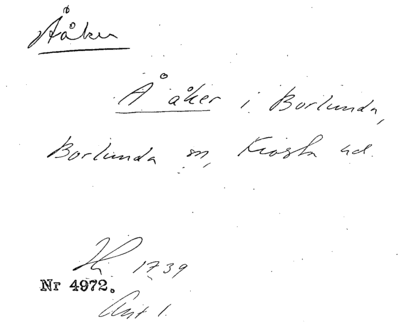 Ååker
Å åker i Borlunda,
Borlunda sn, Frosta hd.
1739
Nr 4972.
Akt 1.